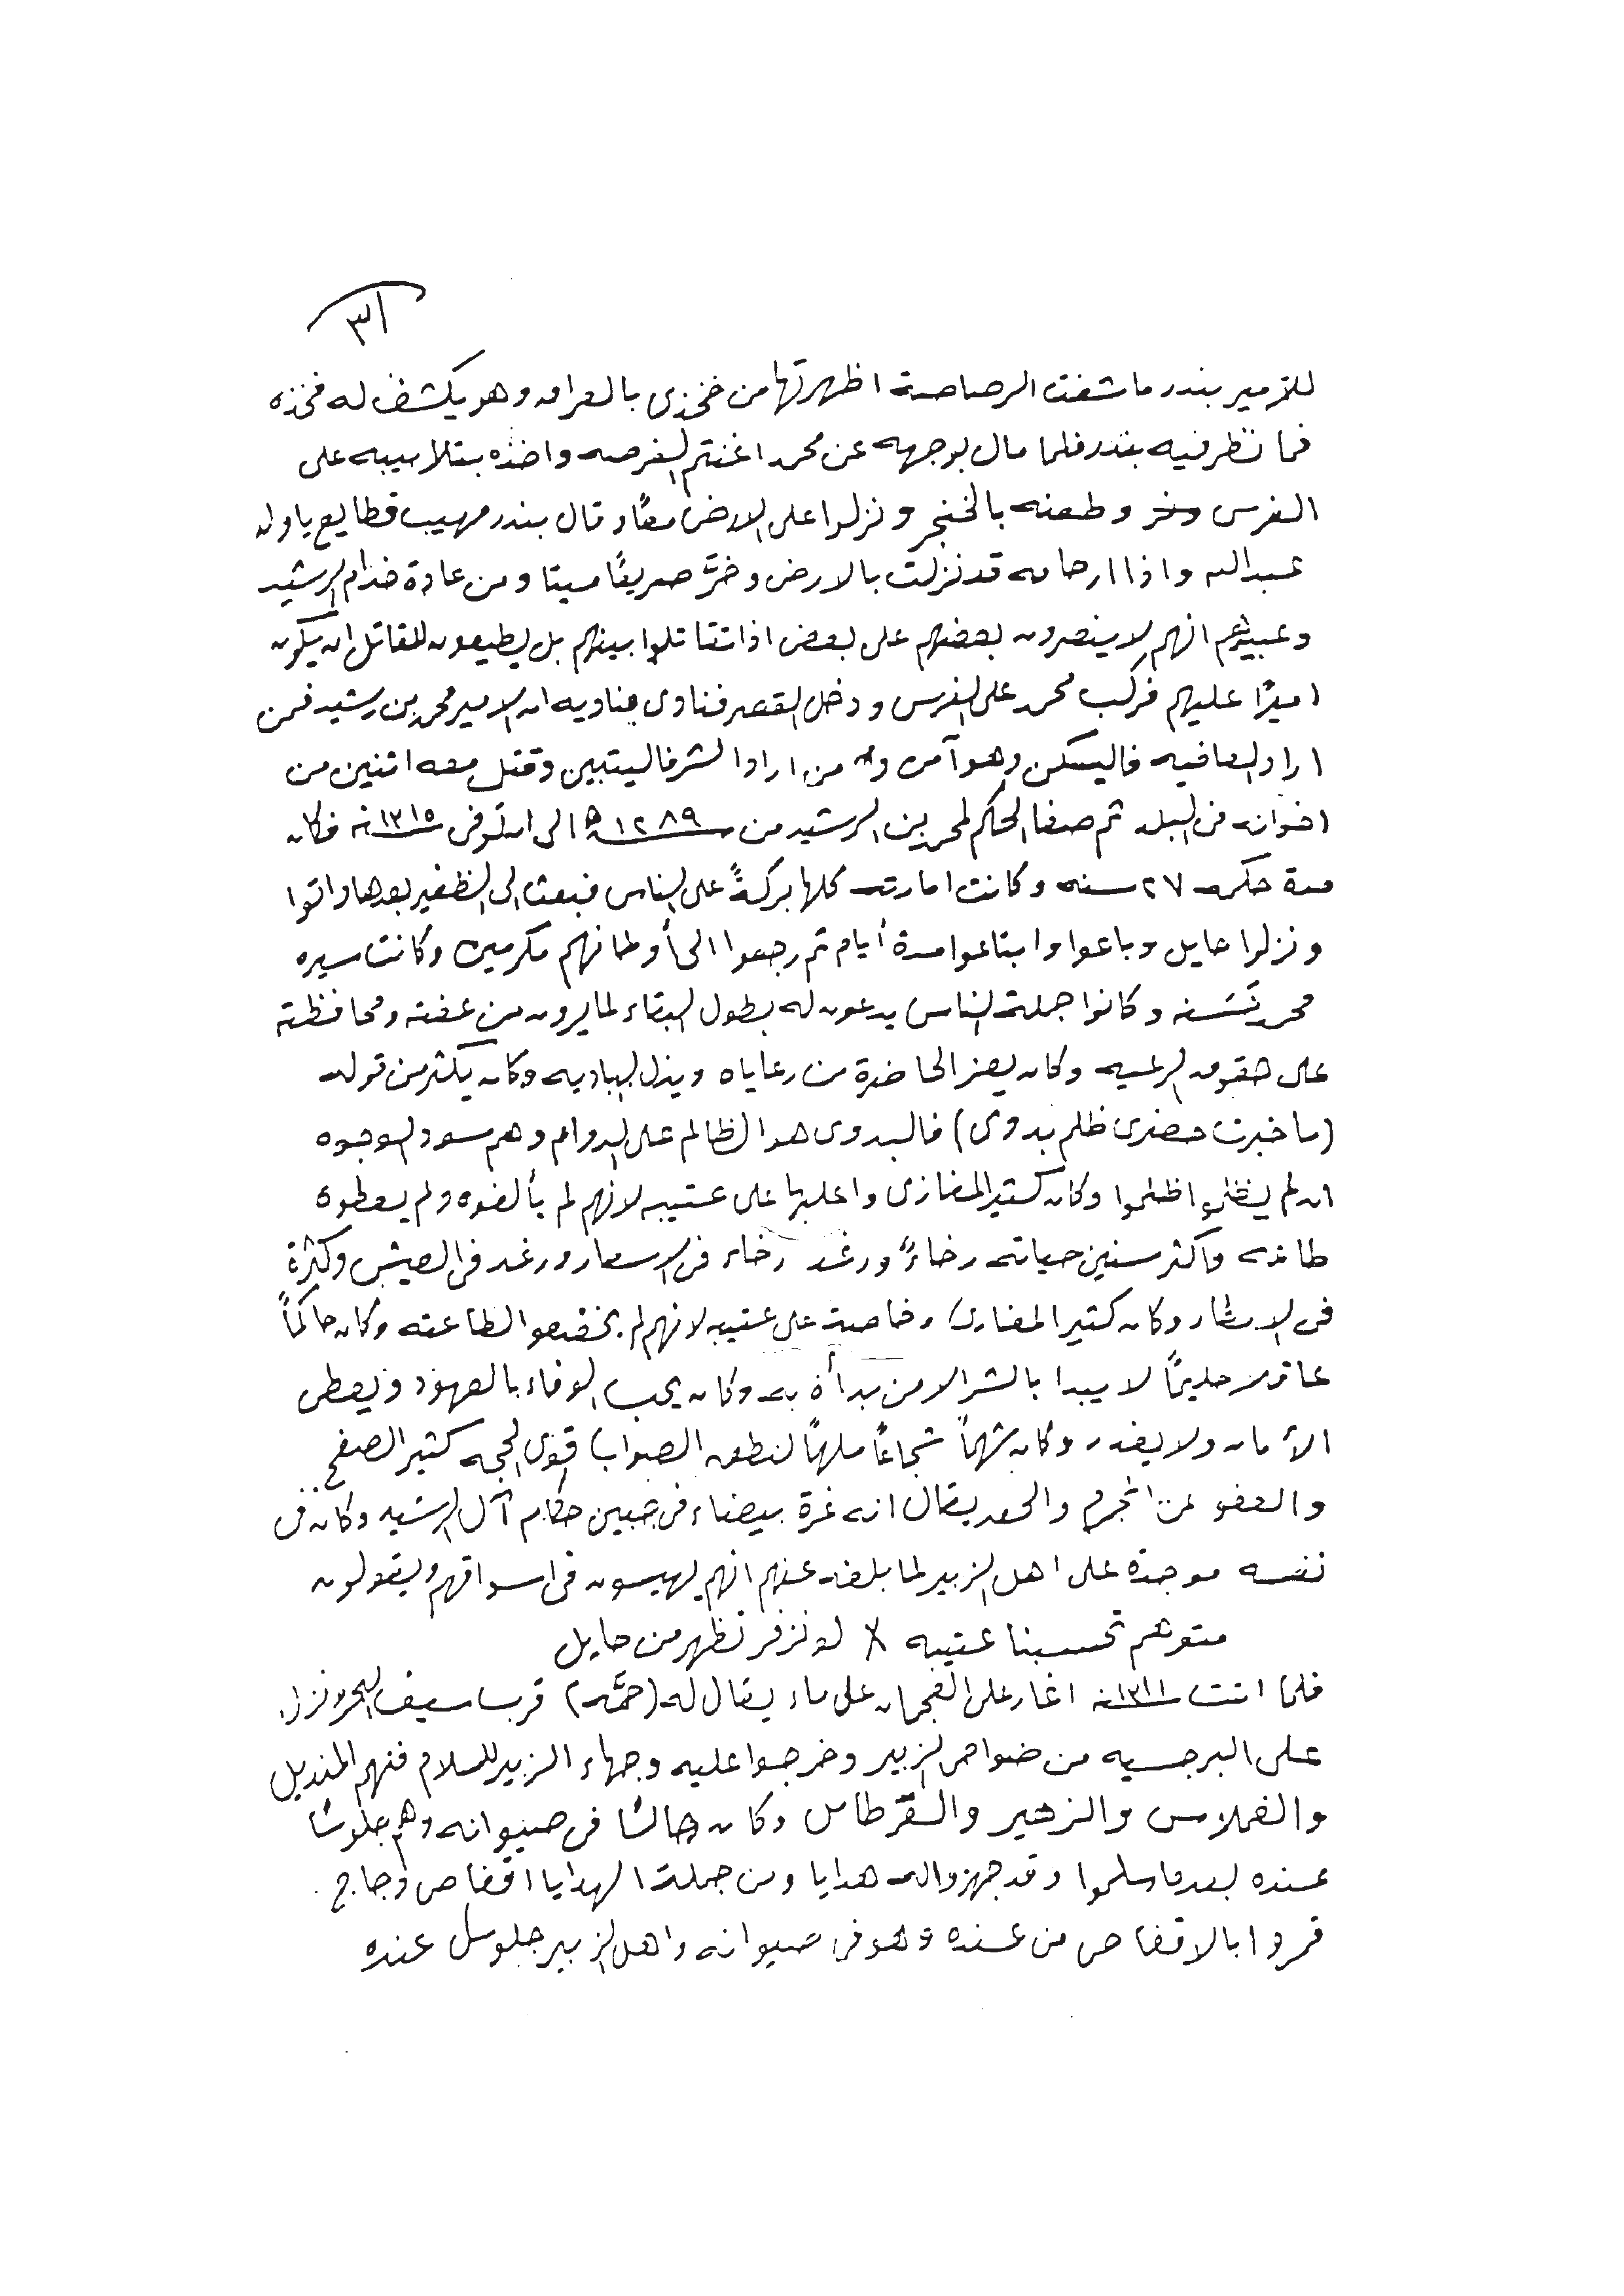 ٣١
للأمير بندر ما شفت الرصاصة اظهرتها من فخذي بالعراق وهو يكشف له فخذه
فما نظر فيه بندر فلما مال بوجهه عن محمد اغتنم الفرصه واخذه بتلابيبه على
الفرس وطعنه بالخنجر ونزلوا على الارض معًا وقال بندر مهيب قطايع يا ولد
عبدالله واذا ارحامه قد نزلت بالارض وخرَّ صريعًا ميتا ومن عادة خدام الرشيد
وعبيدهم انهم لا ينصرون بعضهم على بعض اذا تقاتلوا بينهم بل يطيعون للقاتل ان يكون
اميرًا عليهم فركب محمد على الفرس ودخل القصر فنادى مناديه ان الامير محمد بن رشيد فمن
اراد العافيه فاليسكن وهو آمن و من اراد الشر فاليتبين وقتل معه اثنين من
اخوانه في البلد ثم صفا الحكم لمحمد بن الرشيد من سنة ١٢٨٩هـ الى ان توفى سنة ١٣١٥ فكان
مدة حكمه ٢٧ سنه وكانت امارته كلها بركةً على الناس فبعث الى الظفير بعدها واتوا
ونزلوا حايل وباعوا وابتاعوا مدة أيام ثم رجعوا الى أوطانهم مكرمين وكانت سيره
محمد حَسَنه وكانوا جملة الناس يدعون له بطول البقاء لما يرون من عفته ومحافظته
على حقوق الرعيه وكان يعز الحاضرة من رعاياه ويذل الباديه وكان يكثر من قوله
(ما خبرت حضري ظلم بدوي) فالبدوي هو الظالم على الدوام وهم سود الوجوه
ان لم يظلموا ظلموا وكان كثير المغازي واغلبها على عتيبه لانهم لم يألفوه ولم يعطوه
طاعه واكثر سنين حياته رخاءً ورغد رخاء في الاسعار ورغد في العيش وكثرة
في الامطار وكان كثير المغازي وخاصة على عتيبه لانهم لم يخضعوا لطاعته وكان حاكمًا
عاقلا حليمًا لا يبدا بالشر الا من بدأه به وكان يحب الوفاء بالعهود ويعطي
الأمان ولا يغدر وكان شهمًا شجاعًا ملهمًا لنطق الصواب قوي الحجه كثير الصفح
والعفو عن المجرم والحق يقال انه غرة بيضاء في جبين حكام آل الرشيد وكان في
نفسه موجدة على اهل الزبير لما بلغه عنهم انهم يهيسون في اسواقهم ويقولون
متوهم تحسبنا عتيبه X لو نزفر تظهر من حايل
فلما اتت سنة ١٣١١ اغار على العجمان على ماء يقال له (حمَّه) قرب سيف البحر ونزل
على البرجسيه من ضواحي الزبير وخرجوا عليه وجهاء الزبير للسلام فمنهم المنديل
والفملاس والزهير والقرطاس وكان جالسًا في صيوانه وهم جلوسًا
عنده بعدما سلموا وقد جهزوا له هدايا ومن جملة الهدايا اقفاص دجاج
فمروا بالاقفاص من عنده وهو في صيوانه واهل الزبير جلوس عنده